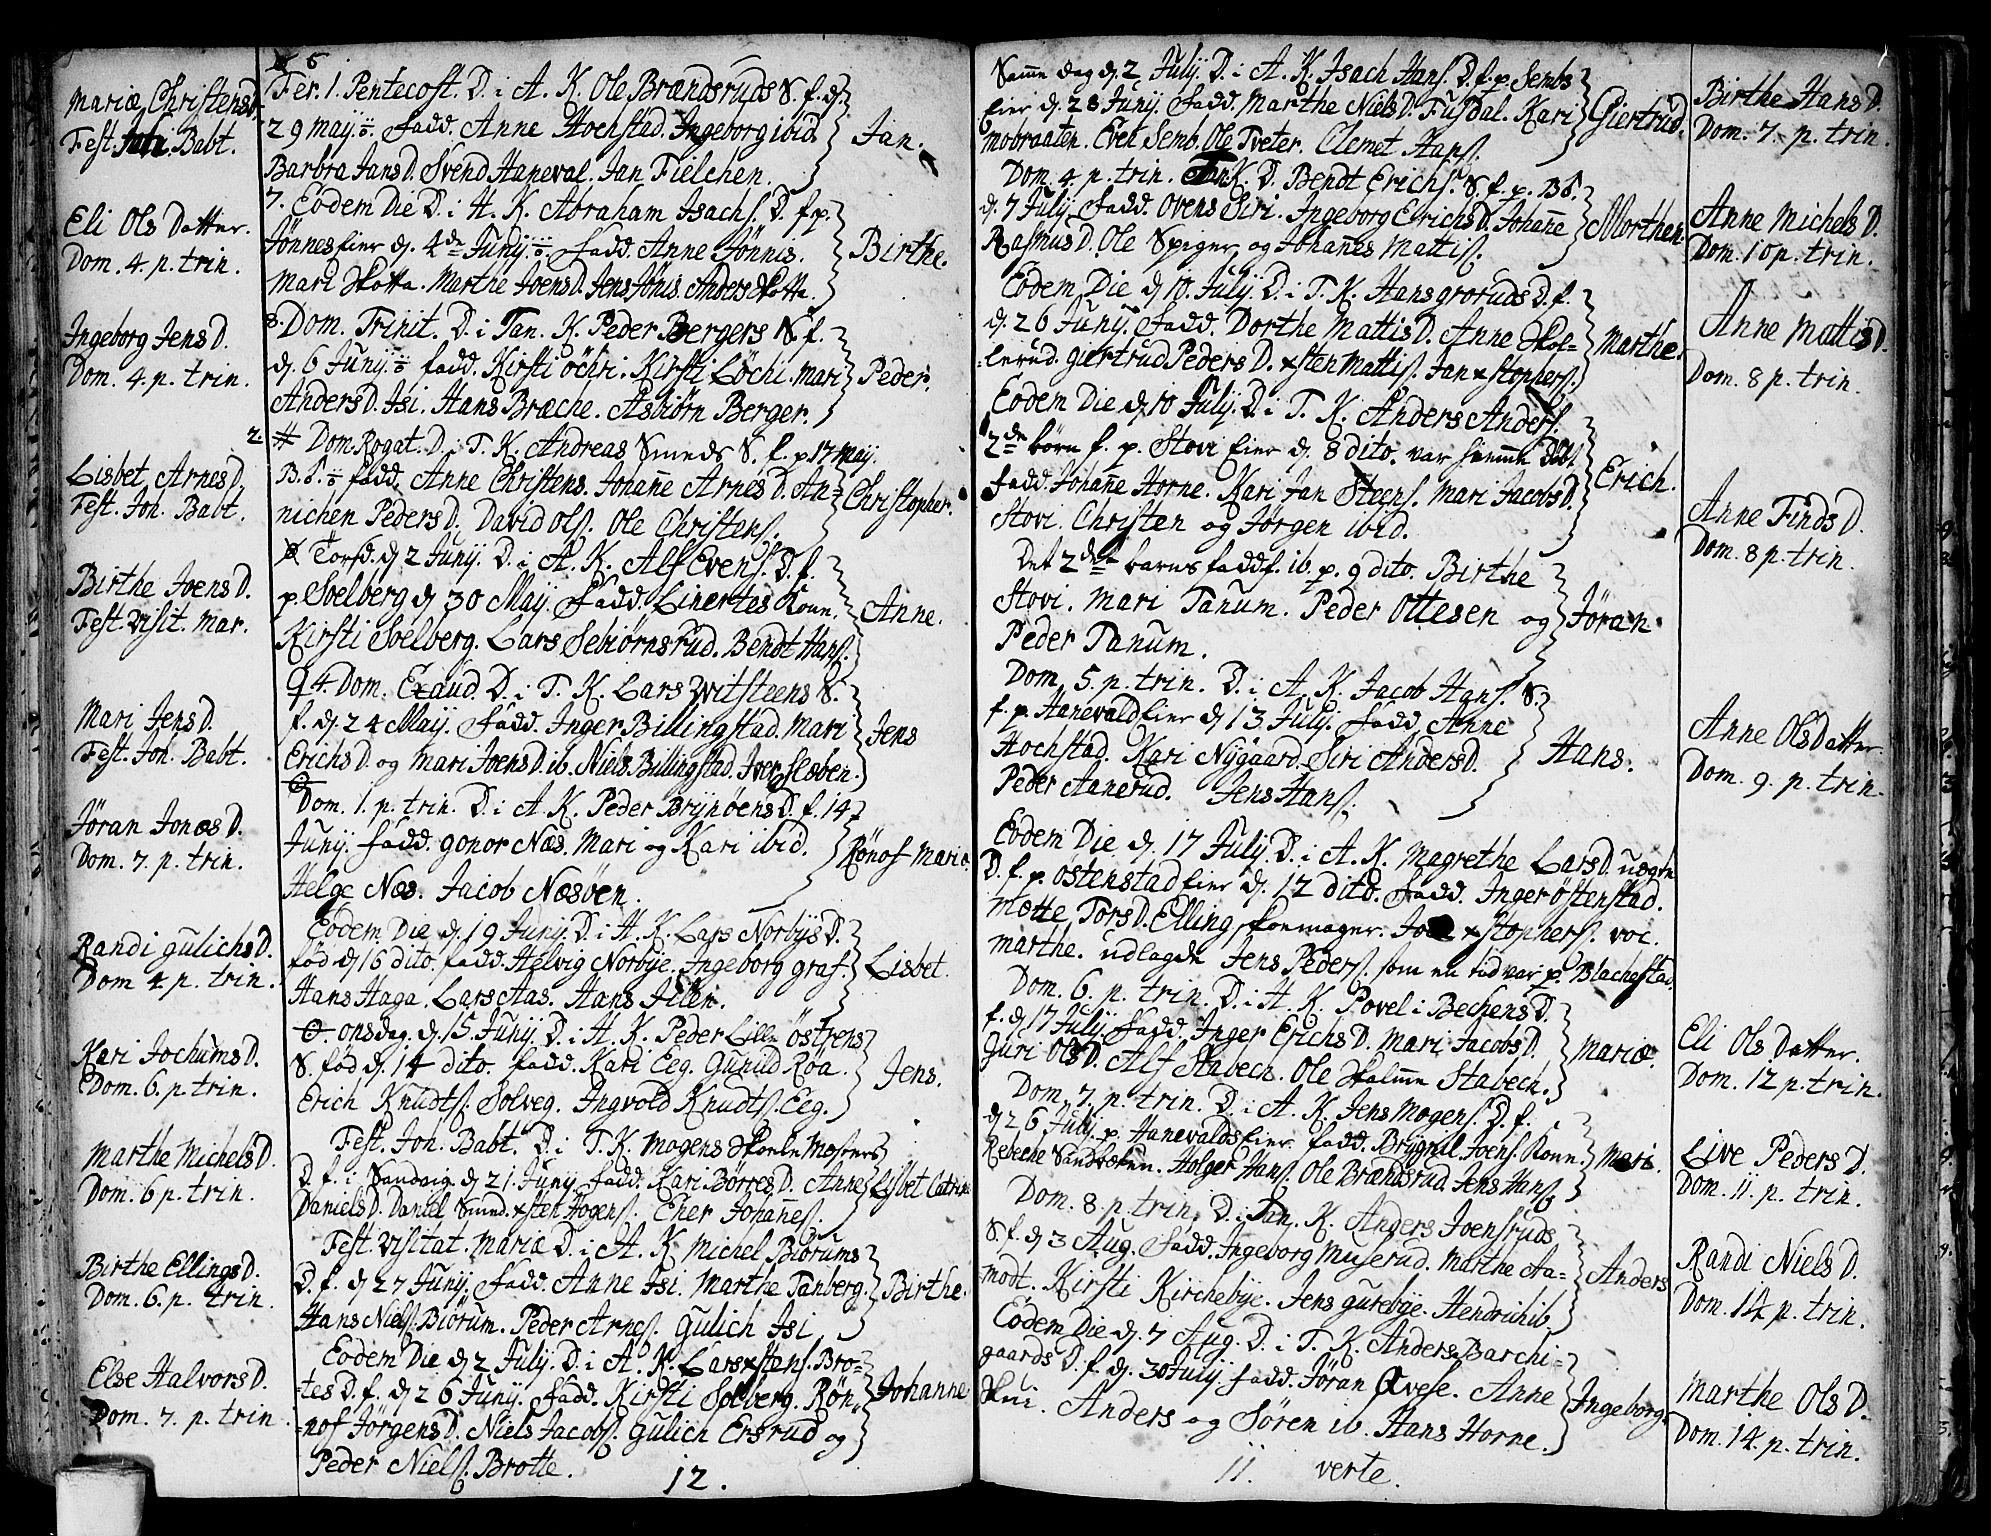 Mariæ Christensd.
Fest. Joh. Babt.
Eli Ols Datter.
Dom. 4. p. trin.
Ingeborg Jens D.
Dom. 4. p. trin.
Lisbet Arnes D.
Fest. Joh. Babt.
Birthe Joens D.
Fest. visit. Mar.
Mari Jens D.
Fest. Joh. Babt.
Jöran Jonæs D.
Dom. 7. p. trin.
Randi gulichs D.
Dom 4. p. trin.
Kari Jochums D.
Dom. 6. p. trin.
Marthe Michels D.
Dom. 6 p. trin.
Birthe Ellings D.
Dom. 6. p. trin.
Else Halvors D.
Dom. 7. p. trin.
6
Fer. 1. Pentecost. D. i A. K. Ole Brændsruds S. f. d.
29 Maij. Fadd. Anne Hochstad. Ingeborg ibid.
Barbra Jans D. Svend Haneval. Jan Fielchen.
Jan.
7. Eodem Die D. i H. K. Abraham Isachs. D. f. p.
Jönnes Eier d. 4de Junij. Fadd. Anne Jönnis.
Mari Skotta. Marthe Joens D. Jens Jönis. Anders Skotta.
Birthe.
8. Dom. Trinit. D. i Tan. K. Peder Bergers S. f.
d. 6 Junij. fadd. Kirsti öchri. Kirsti Löchi. Mari
Anders D. Isi. Hans Bræche. Asbiörn Berger.
Peder.
2. # Dom Rogat. D. i T. K. Andreas Smeds S. f. p. 17 Maij.
B. S. fadd. Anne Christens. Johañe Arnes D. An=
nichen Peders D. David Ols. Ole Christens.
Christopher.
Torsd. d 2 Junij. D. i A. K. Alf Evens. D. f.
p. Solberg d 30 Maij. Fadd. Linertes Kone.
Kirsti Soelberg. Lars Sebiörnsrud. Bendt Hans.
Anne.
4. Dom. Exaud. D. i T. K. Lars Witsteens S.
f. d. 24 Maij. Fadd. Inger Billingstad. Mari
Erichs D. og Mari Joens D. ib. Niels Billingstad. Iver Sleben.
Jens
Dom. 1. p. trin. D. i A. K. Peder Brynöens D. f. 14
Junij. Fadd. gonor Næs. Mari og Kari ibid.
Helge Næs. Jacob Næsöen.
Rönof Mariæ
Eodem Die d. 19 Junij. D. i H. K. Lars Norbijs D.
fød d 16 dito. fadd. Helvig Norbye. Ingeborg graf.
Hans Haga. Lars Aas. Hans Jilen.
Lisbet.
onsdag. d. 15. Junij. D. i H. K. Peder Lille östrens
S. fød d. 14 dito. fadd. Kari Eeg. Gunild Röa.
Erich Knudts. Solveg. Ingvold Knudts. Eeg.
Jens.
Fest. Joh. Babt. D. i T. K. Mogens Skoele Mesters
D. f. i Sandvig d 21. Junij fadd. Kari Börres D. Anne
Daniels D. Daniel Smed. xsten Hogens. Ener Johañes.
Lisbet Catrine
Fest. Visitat. Mariæ D. i H. K. Michel Biörums
D. f. d. 27 Junij. Fadd. Anne Isi. Marthe Tanberg.
Hans Niels. Biörum. Peder Arnes. Gulich Isi
Birthe.
Eodem Die d 2 Julij. D. i A. K. Lars xstens. Bro=
=tes D. f. d 26 Junij. Fadd. Kirsti Solberg. Rön=
=nof Jörgens D. Niels Jacobs. Gulich Ersrud og
Peder Niels. Brotte.
Johanne
12.
Samme dag d. 2 Julij. D. i A. K. Isach Hans. D. f. p. Sembs
Eier d. 28 Junij. Fadd. Marthe Niels D. Fusdal. Kari
Mobraaten. Even Semb. Ole Tveter. Clemet Hans.
Giertrud.
Dom. 4. p. trin. Tan K. D. Bendt Erichs. S. f. p. B S.
d. 7 Julij Fadd. Ovens Siri. Ingeborg Erichs D. Johañe
Rasmus D. Ole Spiger og Johañes Mattis.
Morthen.
Eodem Die d 10. Julij. D. i T. K. Hans groruds D. f.
d. 26 Junij. Fadd. Dorthe Mattis D. Anne Skol=
=lerud. giertrud Peders D. xsten Mattis. Jan xstophers.
Marthe.
Eodem Die d 10 Julij. D. i T. K. Anders Anders.
2de børn f. p. Stovi Eier d. 8 dito. var hiemme Døbt
fadd. Johañe Horne. Kari Jan Steens. Mari Jacobs D.
Stovi. Christen og Jörgen ibid.
Erich.
Det 2det barns fadd. f. ib. p. 9 dito. Birthe
Stovi. Mari Tanum. Peder Ottesen og
Peder Tanum.
Jöran
Dom. 5. p. trin. D. i A. K. Jacob Hans. S.
f. p. Hanevald Eier d 13 July. Fadd. Anne
Hochstad. Kari Nÿgaard. Siri Anders D.
Peder Aanerud. Jens Hans.
Hans.
Eodem Die d. 17 Julij. D. i A. K. Magrethe Lars D. uægte
D. f. p. östenstad Eier d. 12 dito. Fadd. Inger östenstad.
Mette Tors D. Elling skoemager. xstophers. voi.
Marthe. udlagde Jens Peders. som en tid var p. Blachestad.
Dom. 6. p. trin. D. i H. K. Povel i Bechens D.
f. d 17 Julij. Fadd. Inger Erichs D. Mari Jacobs D.
Guri Ols D. Alf Stabech. Ole Skalme Stabech.
Mariæ.
Dom. 7. p. trin. D. i A. K. Jens Mogens. D. f.
d 26 Julij. p. Hanevalds Eier. fadd. Brÿgnil Joens. Kone.
Rebeche Sandvæken. Holger Hans. Ole Brændsrud. Jens Hans
Mari.
Dom. 8. p. trin. D. i Tan. K. Anders Joensruds
S. f. d 3 Aug. Fadd. Ingeborg Muserud. Marthe Aa=
=modt. Kirsti Kirchebye. Jens gurebye. Hendrich ib.
Anders
Eodem Die d. 7 Aug. D. i T. K. Anders Barchi=
gaards D. f. d. 30 Julij. fadd. Jöran Øvese. Anne
Skui. Anders og Sören ib. Hans Horne.
Ingeborg
11. verte.
Birthe Hans D.
Dom. 7. p. trin.
Anne Michels D.
Dom. 10 p. trin.
Anne Mattis D.
Dom. 8 p. trin.
Anne Finds D.
Dom. 8 p. trin.
Anne Ols Datter.
Dom. 9. p. trin.
Eli Ols Datter.
Dom. 12 p. trin.
Live Peders D.
Dom. 11. p. trin.
Randi Niels D.
Dom. 14 p. trin.
Marthe Ols D.
Dom. 14. p. trin.